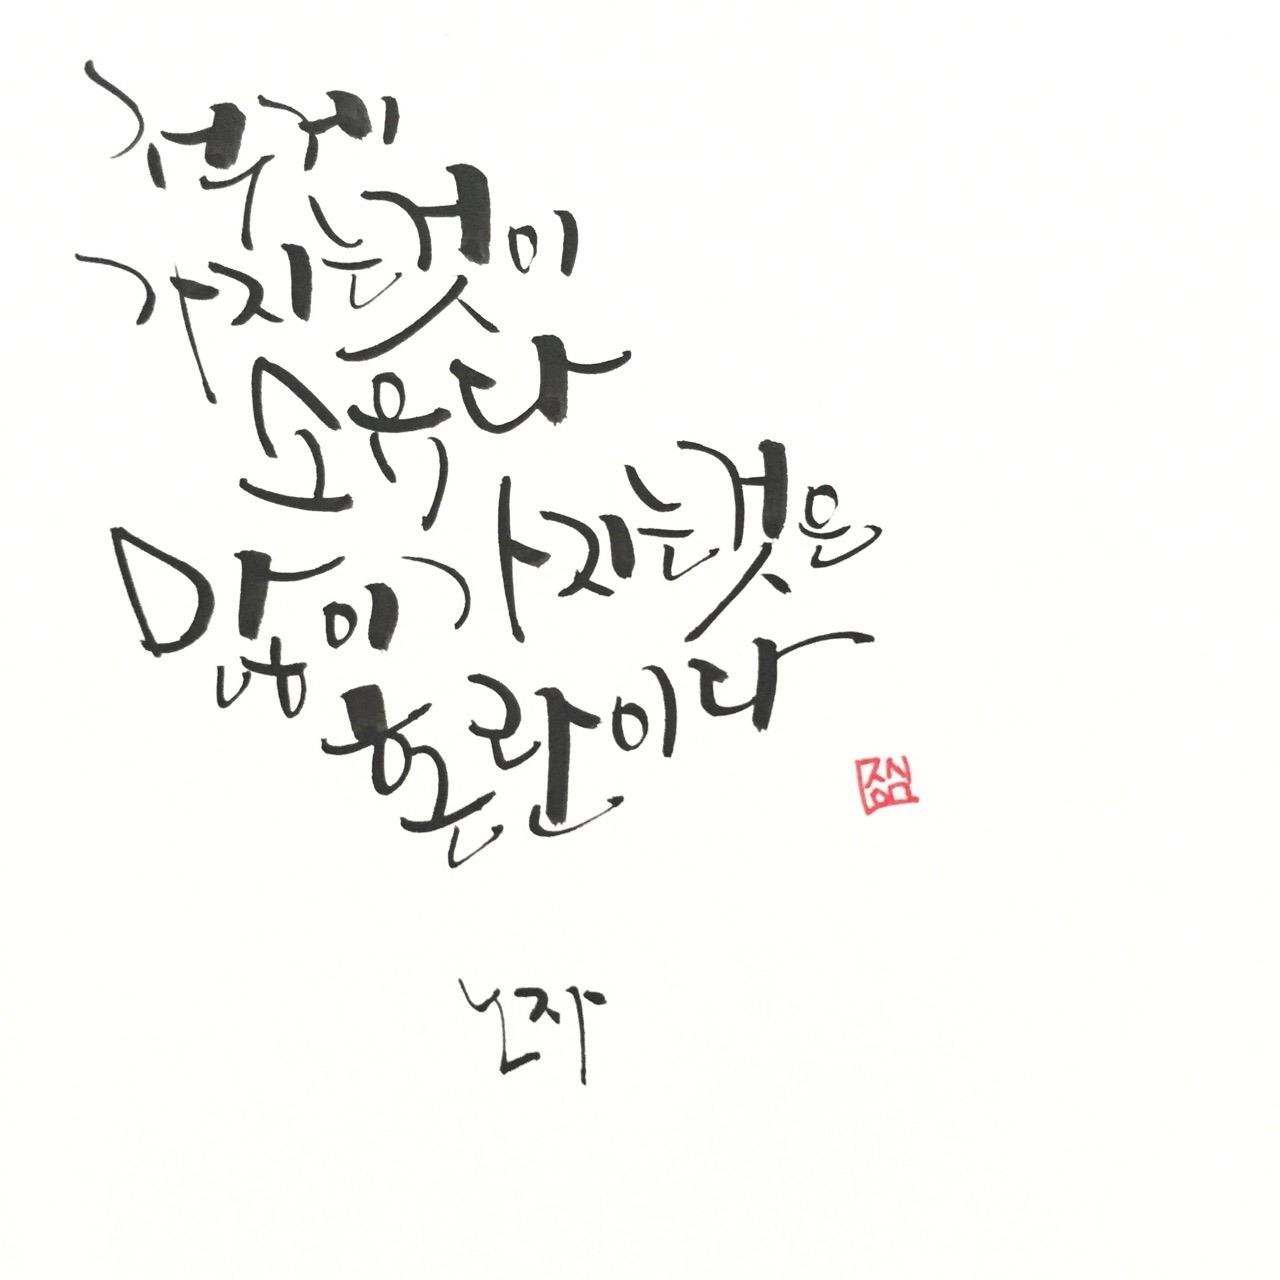 적게
가지는것이
소유다
많이 가지는것은
혼란이다
노자